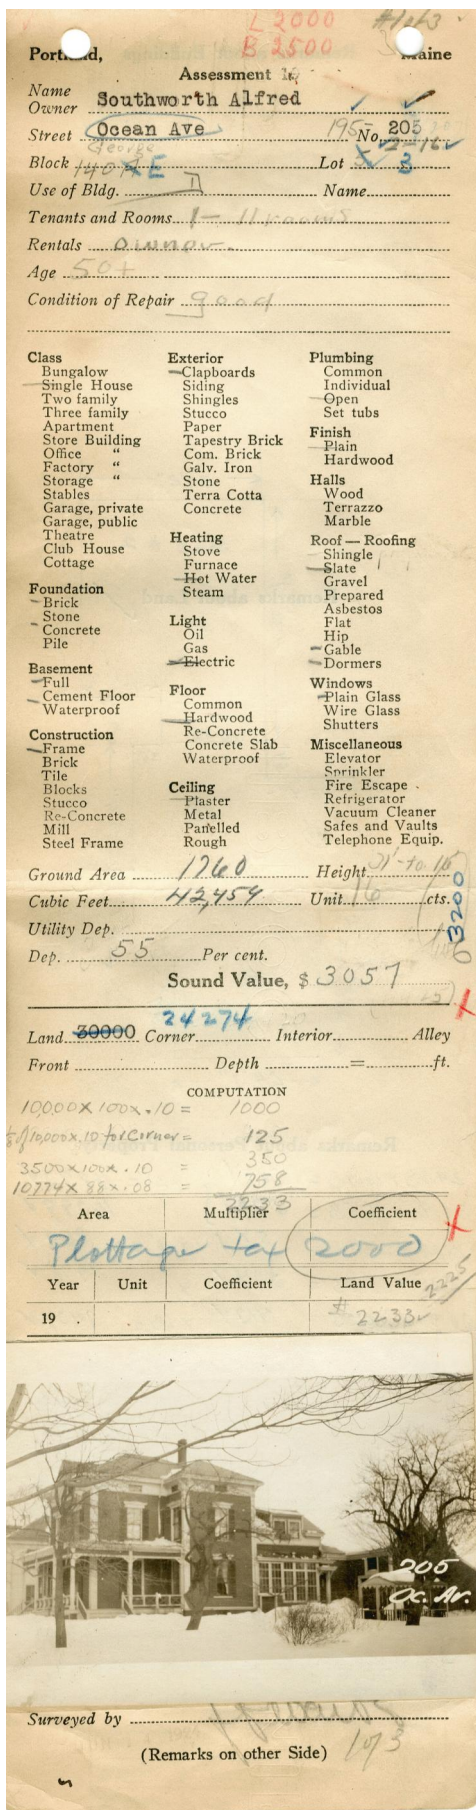 L 2000
#1 of 3
B 2500
Portland, Maine
Assessment 19
Name
Owner Southworth Alfred
Street Ocean Ave 195- No. 205
George
Block 140A E Lot 5 3
Use of Bldg. D Name
Tenants and Rooms 1 - 11 rooms
Rentals owner.
Age 50+
Condition of Repair good
Class
Bungalow
Single House
Two family
Three family
Apartment
Store Building
Office "
Factory "
Storage "
Stables
Garage, private
Garage, public
Theatre
Club House
Cottage
Foundation
Brick
Stone
Concrete
Pile
Basement
Full
Cement Floor
Waterproof
Construction
Frame
Brick
Tile
Blocks
Stucco
Re-Concrete
Mill
Steel Frame
Exterior
Clapboards
Siding
Shingles
Stucco
Paper
Tapestry Brick
Com. Brick
Galv. Iron
Stone
Terra Cotta
Concrete
Heating
Stove
Furnace
Hot Water
Steam
Light
Oil
Gas
Electric
Floor
Common
Hardwood
Re-Concrete
Concrete Slab
Waterproof
Ceiling
Plaster
Metal
Panelled
Rough
Plumbing
Common
Individual
Open
Set tubs
Finish
Plain
Hardwood
Halls
Wood
Terrazzo
Marble
Roof — Roofing
Shingle
Slate
Gravel
Prepared
Asbestos
Flat
Hip
Gable
Dormers
Windows
Plain Glass
Wire Glass
Shutters
Miscellaneous
Elevator
Sprinkler
Fire Escape
Refrigerator
Vacuum Cleaner
Safes and Vaults
Telephone Equip.
Ground Area 1760 Height 21'-to 16'
Cubic Feet 42,454 Unit 16 cts.
3200
Utility Dep.
Dep. 55 Per cent.
Sound Value, $ 3057
24274
Land 30000 Corner Interior Alley
Front Depth = ft.
COMPUTATION
10,000 X 100 X .10 = 1000
10,000 X .10 for Corner = 125
3500 X 100 X .10 = 350
10774 X 88 X .08 = 758
2233
Area Multiplier Coefficient
Plottage tax 2000
Year Unit Coefficient Land Value
2225
19 . $ 2233
205
Oc. Av.
Surveyed by
(Remarks on other Side)
1 of 3